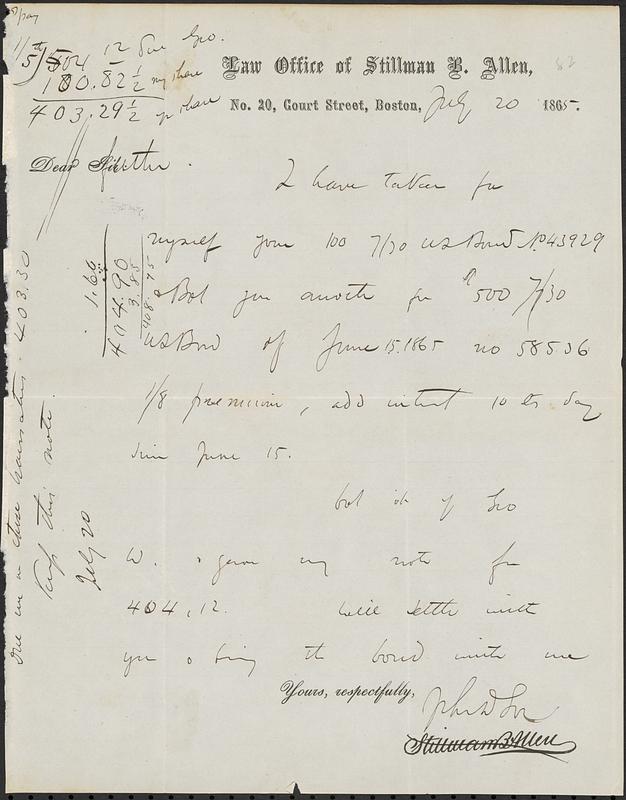 504 12 due Geo.
100.82 1/2 my share
403.29 1/2 yr share
Law Office of Stillman B. Allen,
No. 20, Court Street, Boston, July 20 1865.
Dear
I have taken for
myself your 100 7/30 US Bond No 43929
& Bot you another for $500 7/30
US Bond of June 15. 1865 no 58536
1/8 premium, add interest 10 cts day
since June 15.
bot it of Geo
W. & gave my note for
404,12. Will settle with
you & bring the bond with me
Yours, respectfully,
Stillman B. Allen
1.60
404.90
3.85
408.75
due me on these 403.30
Keep this note.
July 20